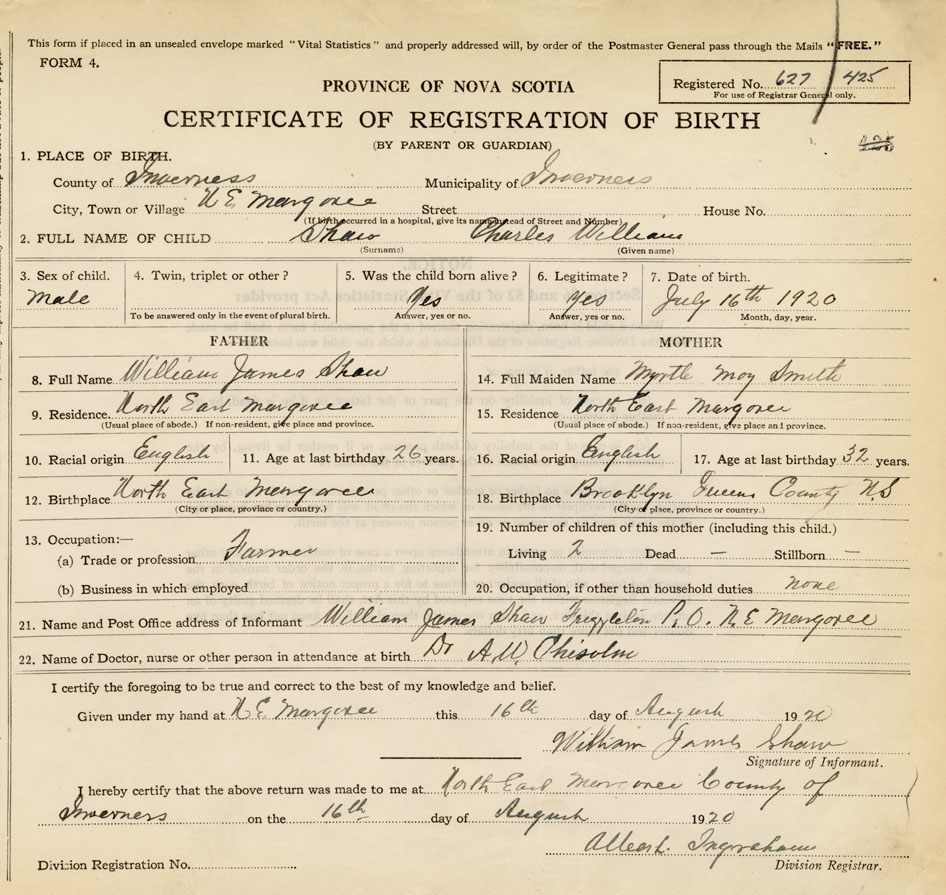 This form if placed in an unsealed envelope marked "Vital Statistics" and properly addressed will, by order of the Postmaster General pass through the Mails "FREE."
FORM 4.
Registered No. 627 425
For use of Registrar General only.
PROVINCE OF NOVA SCOTIA
CERTIFICATE OF REGISTRATION OF BIRTH
425
(BY PARENT OR GUARDIAN)
1. PLACE OF BIRTH.
County of Inverness Municipality of Inverness
City, Town or Village N E Margaree Street House No.
(If birth occurred in a hospital, give its name instead of Street and Number)
2. FULL NAME OF CHILD Shaw Charles William
(Surname) (Given name)
3. Sex of child. 4. Twin, triplet or other? 5. Was the child born alive? 6. Legitimate? 7. Date of birth.
Male Yes Yes July 16th 1920
To be answered only in the event of plural birth. Answer, yes or no. Answer, yes or no. Month, day, year.
FATHER MOTHER
8. Full Name William James Shaw 14. Full Maiden Name Myrtle May Smith
9. Residence. North East Margaree 15. Residence North East Margaree
(Usual place of abode.) If non-resident, give place and province. (Usual place of abode.) If non-resident, give place and province.
10. Racial origin English 11. Age at last birthday 26 years. 16. Racial origin English 17. Age at last birthday 32 years.
12. Birthplace North East Margaree 18. Birthplace Brooklyn Queens County N S
(City or place, province or country.) (City or place, province or country.)
13. Occupation:— 19. Number of children of this mother (including this child.)
(a) Trade or profession Farmer Living 2 Dead — Stillborn —
(b) Business in which employed 20. Occupation, if other than household duties none
21. Name and Post Office address of Informant William James Shaw P. O. N. E Margaree
22. Name of Doctor, nurse or other person in attendance at birth Dr A. W. Chisolm
I certify the foregoing to be true and correct to the best of my knowledge and belief.
Given under my hand at N E Margaree this 16th day of August 1920
William James Shaw
Signature of Informant.
I hereby certify that the above return was made to me at North East Margaree County of
Inverness on the 16th day of August 1920
Albert Ingraham
Division Registration No. Division Registrar.